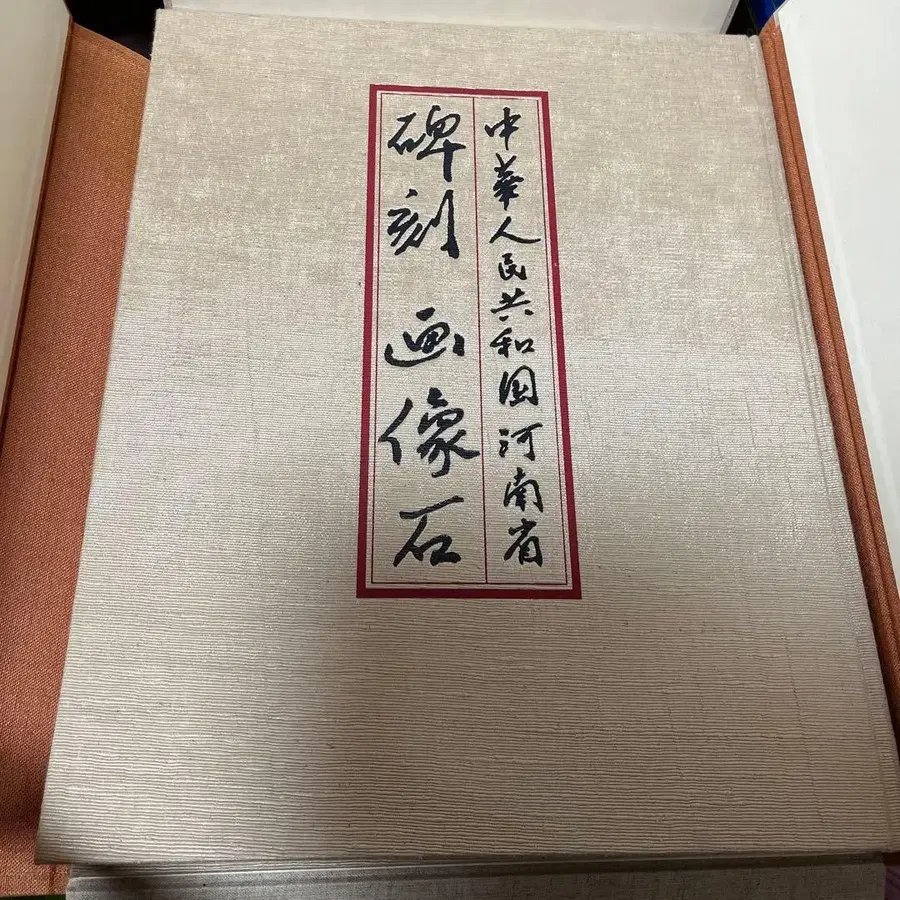 中華人民共和国河南省
碑刻 画像石